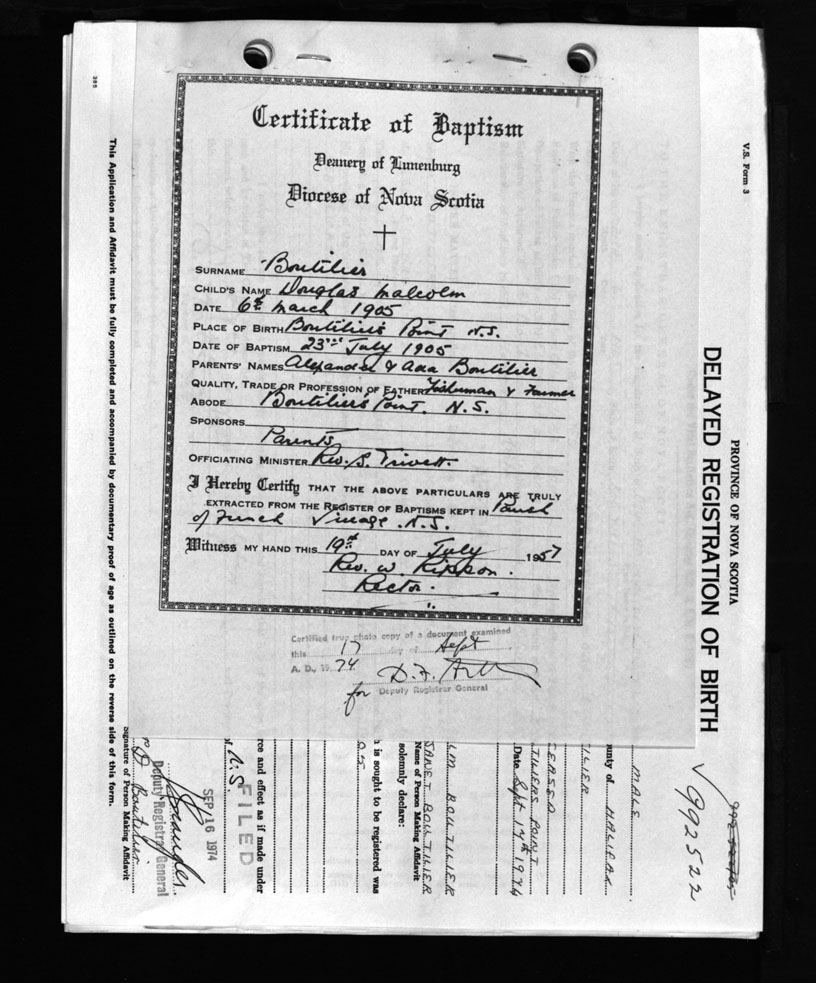 Certificate of Baptism
Deanery of Lunenburg
Diocese of Nova Scotia
SURNAME Boutilier
CHILD'S NAME Douglas Malcolm
DATE 6th March 1905
PLACE OF BIRTH Boutilier's Point N.S.
DATE OF BAPTISM 23rd July 1905
PARENTS' NAMES Alexander & Ada Boutilier
QUALITY, TRADE OR PROFESSION OF FATHER Fisherman & Farmer
ABODE Boutilier's Point. N.S.
SPONSORS
Parents
OFFICIATING MINISTER Rev. S. Trivett.
I Hereby Certify THAT THE ABOVE PARTICULARS ARE TRULY
EXTRACTED FROM THE REGISTER OF BAPTISMS KEPT IN Parish
of French Village. N.S.
Witness MY HAND THIS 19th DAY OF July 1957
Rev. W. Rippon.
Rector.
Certified true photo copy of a document examined
this 17 day of Sept
A. D., 1974
for Deputy Registrar General
V.S. Form 3
PROVINCE OF NOVA SCOTIA
DELAYED REGISTRATION OF BIRTH
992522
MALE
unty of HALIFAX
ILIER
EASED
TILIERS POINT
Date Sept 17th 1974
LM BOUTILIER
JANET BOUTILIER
Name of Person Making Affidavit
solemnly declare:
h is sought to be registered was
rce and effect as if made under
N.S.
FILED
SEP 16 1974
Deputy Registrar General
D. Boutilier
Signature of Person Making Affidavit
This Application and Affidavit must be fully completed and accompanied by documentary proof of age as outlined on the reverse side of this form.
385